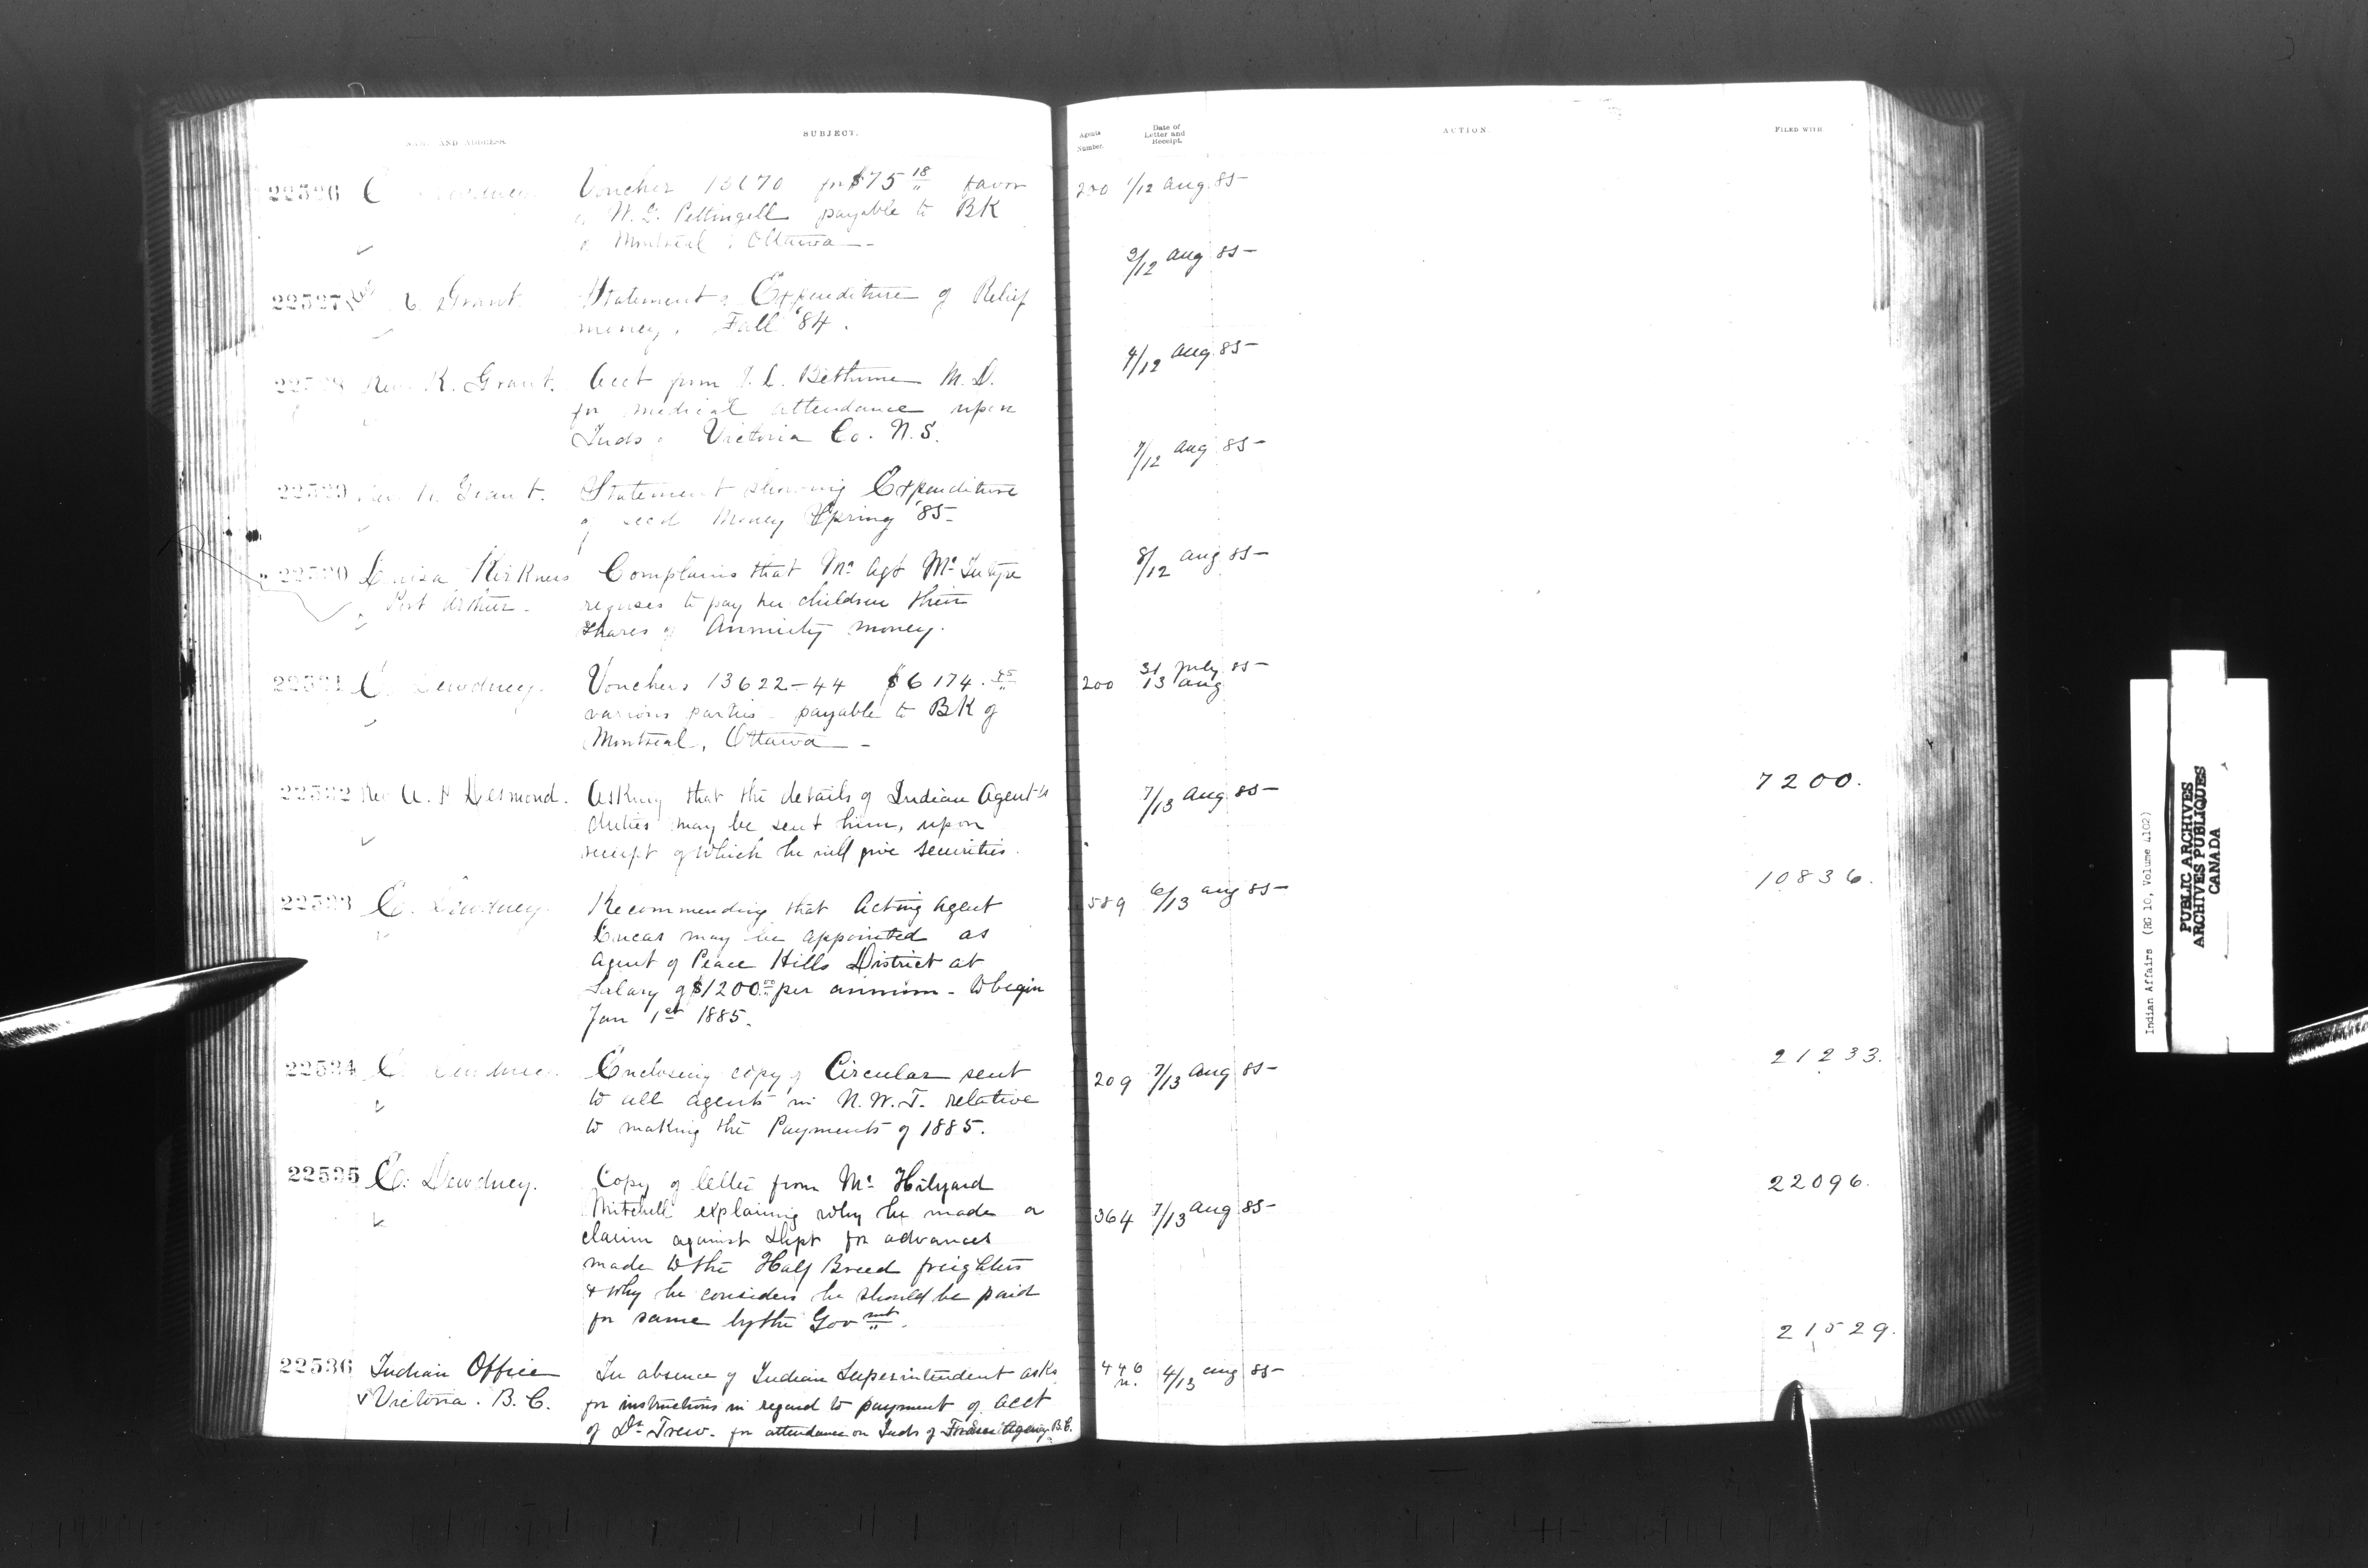 NAME AND ADDRESS.
SUBJECT.
Agents Number.
Date of Letter and Receipt.
ACTION.
FILED WITH
22526 Voucher 13670 for $75 18/" favor
W. G. Pettingell payable to BK
Montreal, Ottawa —
200 1/12 Aug. 85 —
2/12 Aug 85 —
22527 Grant Statement of Expenditure of Relief
money, Fall '84.
4/12 Aug. 85 —
22528 Rev. K. Grant. Acct from Bethune M.D.
for medical attendance upon
Inds of Victoria Co. N.S.
7/12 Aug 85 —
22529 Rev. K. Grant. Statement showing Expenditure
of seed Money Spring '85 —
22530 Louisa Kirkness Complains that Mr Agt McIntyre
8/12 Aug 85 —
Port Arthur — refuses to pay her children their
shares of Annuity money.
22531 E. Dewdney. Vouchers 13622-44 $6174.
200 31 July 85 —
13 Aug
various parties — payable to BK of
Montreal, Ottawa —
22532 Rev A. P. Desmond. Asking that the details of Indian Agent's
7/13 Aug 85 —
7200.
duties may be sent him, upon
receipt of which he will give securities.
22533 E. Dewdney. Recommending that Acting Agent
589 6/13 Aug 85 —
10836.
Lucas may be appointed as
Agent of Peace Hills District at
Salary of $1200.00 per annum — to begin
Jan 1st 1885.
22534 E. Dewdney. Enclosing copy of Circular sent
209 7/13 Aug 85 —
21233.
to all agents in N.W.T. relative
to making the Payments of 1885.
22535 E. Dewdney. Copy of letter from Mr Hilyard
22096.
Mitchell explaining why he made a
364 7/13 Aug 85 —
claim against Dept for advances
made to the Half Breed freighters
& why he considers he should be paid
for same by the Govmt.
21529.
22536 Indian Office In absence of Indian Superintendent asks
446 4/13 Aug 85 —
Victoria. B.C. for instructions in regard to payment of acct
of Dr Trew. for attendance on Inds of Fraser Agency B.C.
Indian Affairs (RG 10, Volume 4102)
PUBLIC ARCHIVES
ARCHIVES PUBLIQUES
CANADA